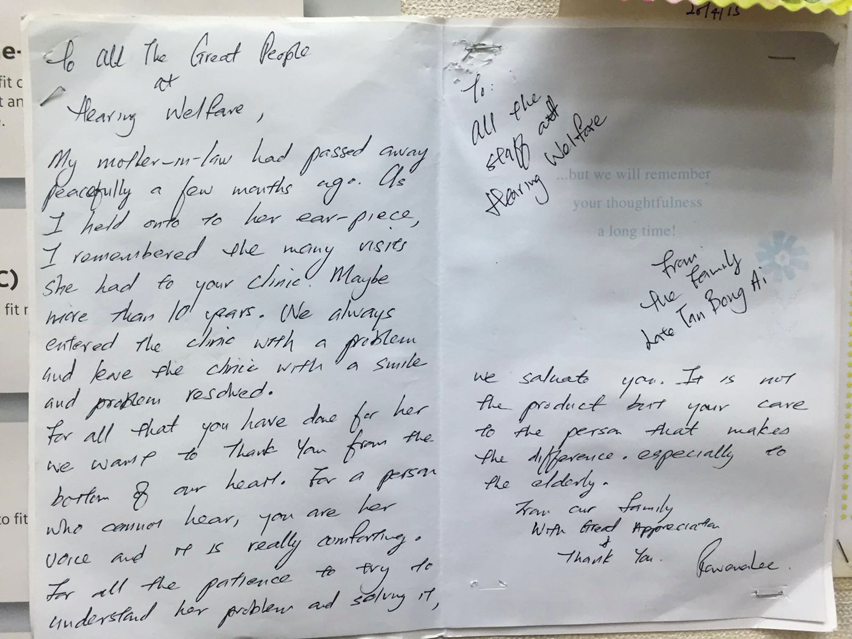 To All The Great People
at
Hearing Welfare,
My mother-in-law had passed away
peacefully a few months ago. As
I held onto to her ear-piece,
I remembered the many visits
she had to your clinic. Maybe
more than 10 years. We always
entered the clinic with a problem
and leave the clinic with a smile
and problem resolved.
For all that you have done for her
we want to Thank You from the
bottom of our heart. For a person
who cannot hear, you are her
voice and it is really comforting.
For all the patience to try to
understand her problem and solving it,
To:
All the
staff at
Hearing Welfare
...but we will remember
your thoughtfulness
a long time!
From
the family
Late Tan Bong Ai
we saluate you. It is not
the product but your care
to the person that makes
the difference. especially to
the elderly.
From our family
With Great Appreciation
&
Thank You.